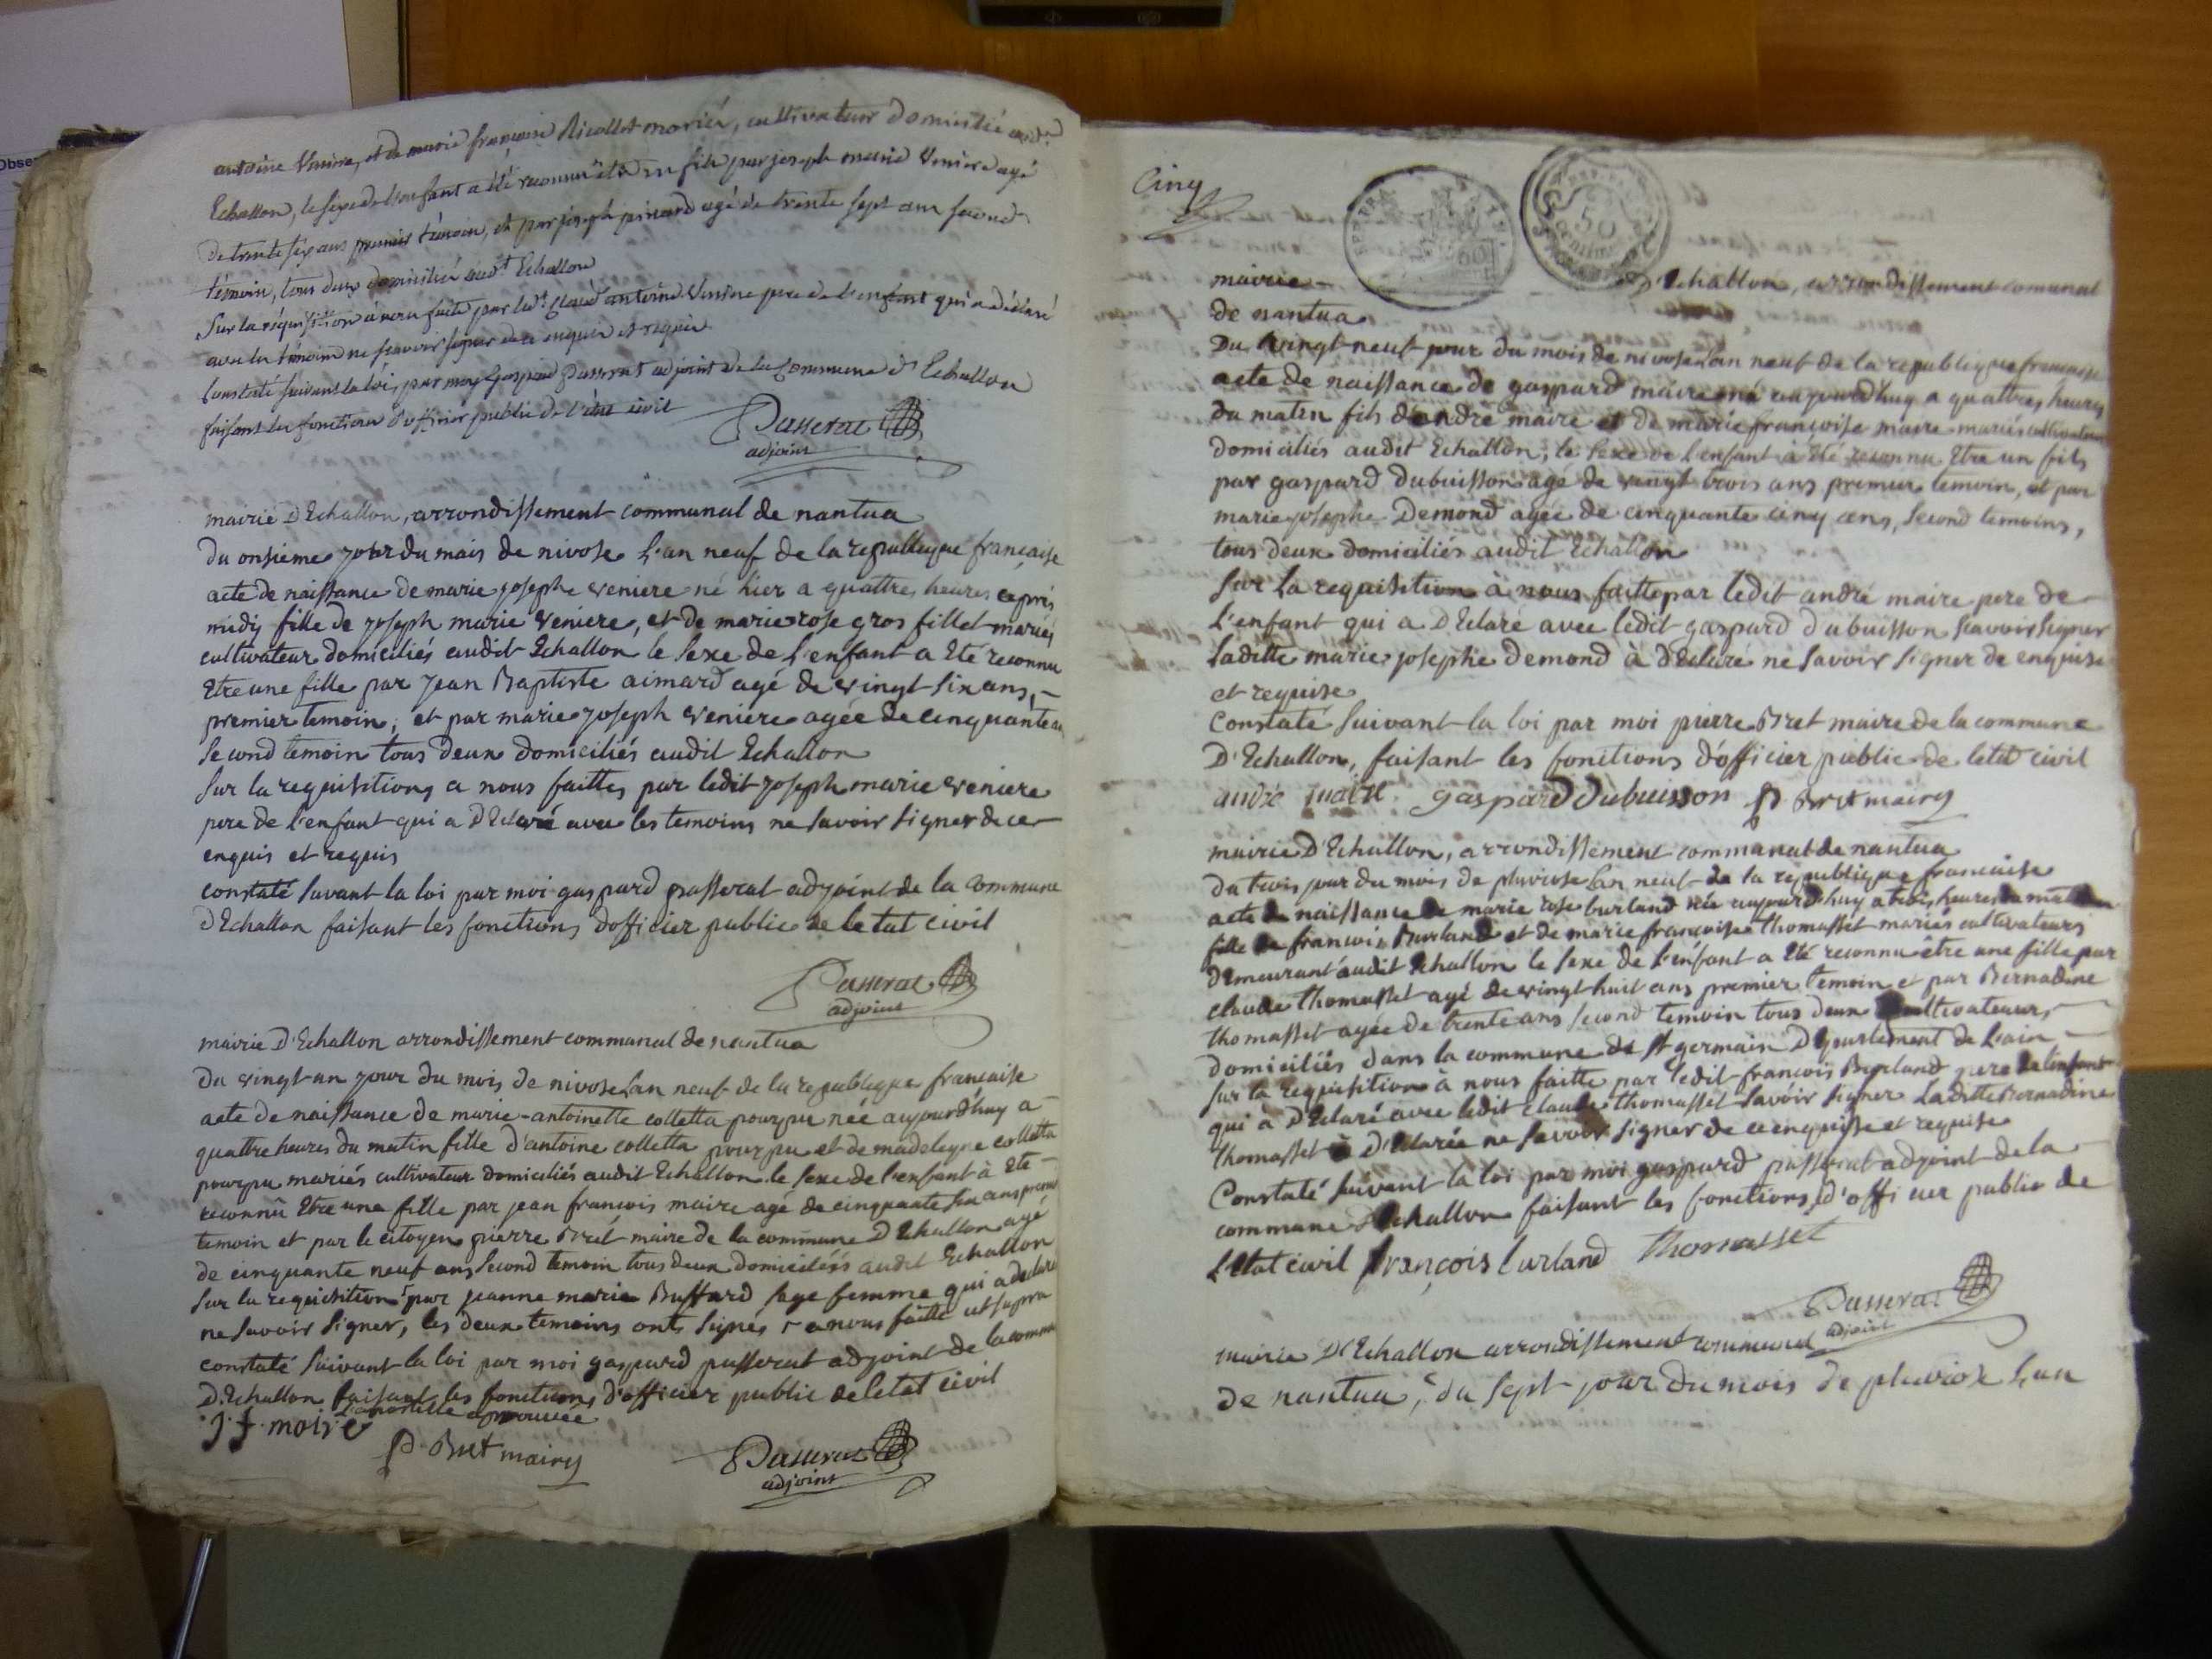 antoine Veniere, et de marie françoise Nicollet mariés, cultivateur domicilié aud.t
Echallon, le sexe de l'enfant a été reconnu être un fils par joseph marie Veniere agé
de trente six ans premier témoin, et par joseph pinard agé de trente sept ans second
témoin, tous deux domiciliés aud.t Echallon
Sur la réquisition à nous faite par led.t Claude antoine Veniere pere de l'enfant qui a déclaré
avec les témoins ne scavoir signer de ce enquis et requis
Constaté suivant la loi, par moy Gaspard Passerat adjoint de la Commune d'Echallon
faisant les fonctions d'officier public de l'état civil
Passerat
adjoint
mairie D'Echallon, arrondissement communal de nantua
du onsieme jour du mois de nivose l'an neuf de la republique française
acte de naissance de marie josephe veniere né hier a quattres heures après
midy fille de joseph marie veniere, et de marie rose gros fillet mariés
cultivateur domiciliés audit Echallon le sexe de l'enfant a Eté reconnu
Etre une fille par jean Baptiste aimard agé de vingt six ans,
premier temoin, et par marie joseph veniere agée de cinquante an
second temoin tous deux domiciliés audit Echallon
Sur la requisitions a nous faittes par ledit joseph marie veniere
pere de l'enfant qui a D'Eclaré avec les temoins ne savoir signer de ce
enquis et requis
constaté suvant la loi par moi gaspard passerat adjoint de la Commune
D'Echallon faisant les fonctions d'officier public de letat civil
Passerat
adjoint
mairie D'Echallon arrondissement communal de nantua
du vingt un jour du mois de nivose lan neuf de la republique française
acte de naissance de marie-antoinette colletta pourpu née aujourdhuy a
quattre heures du matin fille d'antoine colletta pourpu et de madeleyne colletta
pourpu mariés cultivateur domiciliés audit Echallon le sexe de l'enfant à Eté
reconnu Etre une fille par jean francois maire agé de cinquante six ans premier
temoin et par le citoyen pierre Bret maire de la commune D'Echallon agé
de cinquante neuf ans second temoin tous deux domiciliés audit Echallon
Sur la requisition par jeanne marie Buffard sage femme qui a declaré
ne savoir signer, les deux temoins onts signés a nous faitte ut supra
constaté suivant la loi par moi gaspard passerat adjoint de la commune
D'Echallon faisant les fonctions d'officier public de letat civil
l'apostille aprouvée
J. f. moire
P. Bret maire
Passerat
adjoint
Cinq
50
centim
mairie D'Echallon, arrondissement comunal
de nantua
Du vingt neuf jour du mois de nivose lan neuf de la republique francaise
acte de naissance de gaspard maire né aujourdhuy a quattres heures
du matin fils d'andré maire et de marie françoise maire mariés cultivateur
domiciliés audit Echallon, le sexe de l'enfant à Eté reconnu Etre un fils
par gaspard Dubuisson agé de vingt trois ans premier temoin, et par
marie josephe Demond agée de cinquante cinq ans, second temoins,
tous deux domiciliés audit Echallon
Sur la requisition à nous faitte par ledit andré maire pere de
l'enfant qui a D'Eclaré avec ledit gaspard dubuisson scavoir signer
Laditte marie josephe demond à d'Eclaré ne savoir signer de enquise
et requise
Constaté suivant la loi par moi pierre Bret maire de la commune
D'Echallon, faisant les fonctions d'officier public de letat civil
andré maire gaspard Dubuisson P. Bret maire
mairie D'Echallon, arrondissement communal de nantua
du trois jour du mois de pluviose lan neuf de la republique francaise
acte de naissance de marie rose burland née aujourdhuy a trois heures du matin
fille de francois Burland et de marie françoise thomasset mariés cultivateurs
demeurant audit Echallon le sexe de l'enfant a Eté reconnu être une fille par
claude thomasset agé de vingt huit ans premier temoin et par Bernadine
thomasset agée de trente ans second temoin tous deux cultivateurs
domiciliés dans la commune de St germain Département de l'ain
Sur la requisition à nous faitte par ledit francois Burland pere de l'enfant
qui à D'Eclaré avec ledit claude thomasset savoir signer Laditte Bernadine
thomasset à D'Eclarée ne savoir signer de ce enquisse et requise
Constaté suivant la loi par moi gaspard passerat adjoint de la
commune d'Echallon faisant les fonctions d'officier public de
l'Etat civil françois burland Thomasset
Passerat
adjoint
mairie D'Echallon arrondissement communal
de nantua, du sept jour du mois de pluviose l'an